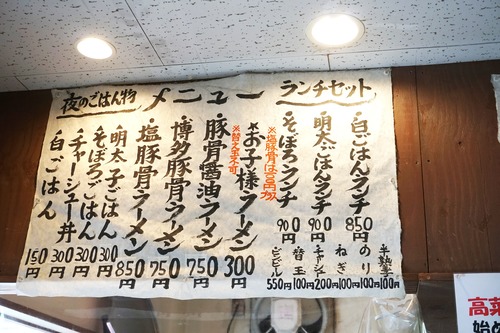 メニュー
ランチセット
白ごはんランチ 850円
明太ごはんランチ 900円
そぼろランチ 900円
※塩豚骨は100円増
お子様ラーメン 300円
※替玉不可
豚骨醤油ラーメン 750円
博多豚骨ラーメン 750円
塩豚骨ラーメン 850円
夜のごはん物
明太子ごはん 300円
そぼろごはん 300円
チャーシュー丼 300円
白ごはん 150円
半熟玉 100円
のり 100円
ねぎ 100円
チャーシュー 200円
替玉 100円
ビール 550円